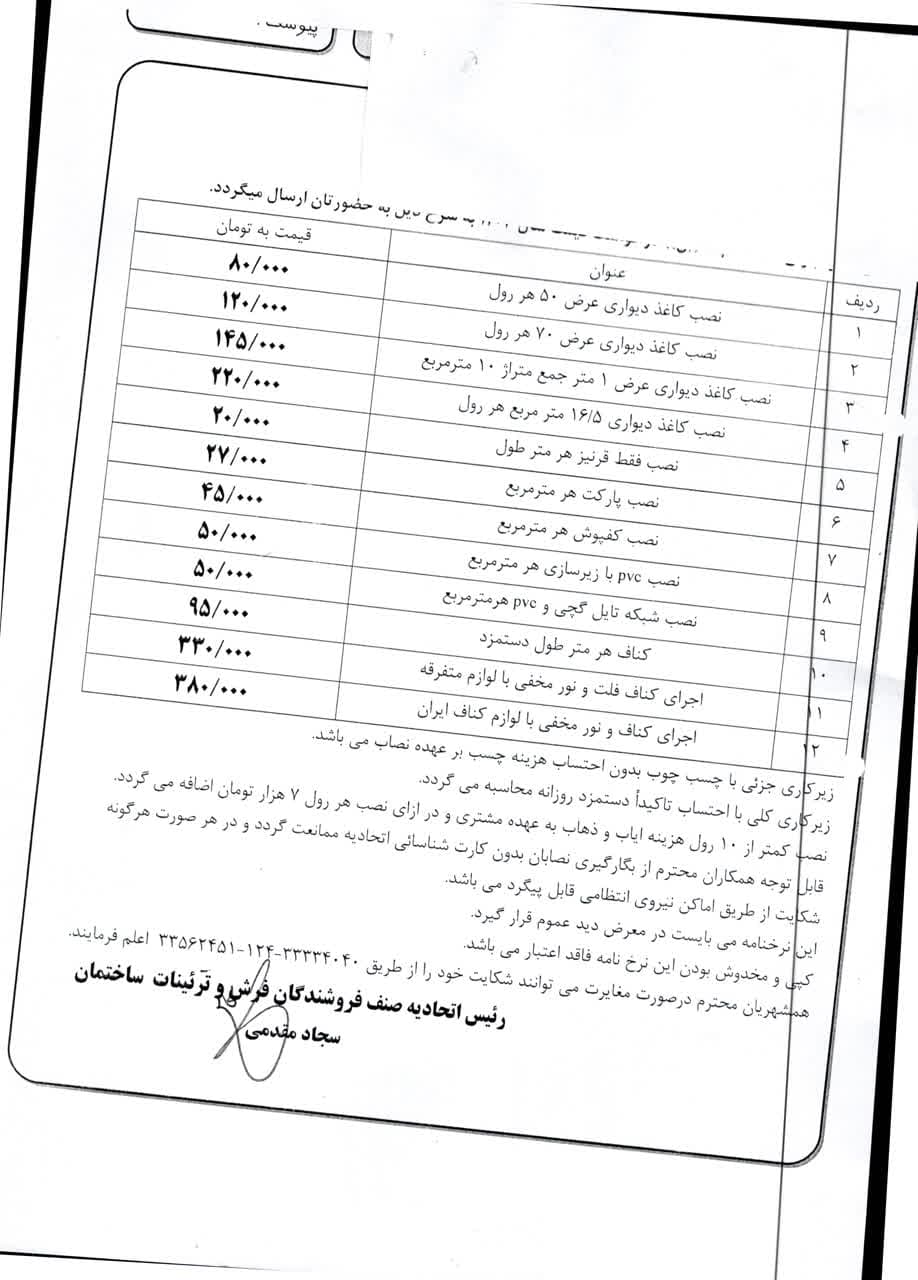 پیوست :
به حضورتان ارسال میگردد.
ردیف عنوان قیمت به تومان
۱ نصب کاغذ دیواری عرض ۵۰ هر رول ۸۰/۰۰۰
۲ نصب کاغذ دیواری عرض ۷۰ هر رول ۱۲۰/۰۰۰
۳ نصب کاغذ دیواری عرض ۱ متر جمع متراژ ۱۰ مترمربع ۱۴۵/۰۰۰
۴ نصب کاغذ دیواری ۱۶/۵ متر مربع هر رول ۲۲۰/۰۰۰
۵ نصب فقط قرنیز هر متر طول ۲۰/۰۰۰
۶ نصب پارکت هر مترمربع ۲۷/۰۰۰
۷ نصب کفپوش هر مترمربع ۴۵/۰۰۰
۸ نصب pvc با زیرسازی هر مترمربع ۵۰/۰۰۰
۹ نصب شبکه تایل گچی و pvc هرمترمربع ۵۰/۰۰۰
۱۰ کناف هر متر طول دستمزد ۹۵/۰۰۰
۱۱ اجرای کناف فلت و نور مخفی با لوازم متفرقه ۳۳۰/۰۰۰
۱۲ اجرای کناف و نور مخفی با لوازم کناف ایران ۳۸۰/۰۰۰
زیرکاری جزئی با چسب چوب بدون احتساب هزینه چسب بر عهده نصاب می باشد.
زیرکاری کلی با احتساب تاکیدأ دستمزد روزانه محاسبه می گردد.
نصب کمتر از ۱۰ رول هزینه ایاب و ذهاب به عهده مشتری و در ازای نصب هر رول ۷ هزار تومان اضافه می گردد.
قابل توجه همکاران محترم از بگارگیری نصابان بدون کارت شناسائی اتحادیه ممانعت گردد و در هر صورت هرگونه
شکایت از طریق اماکن نیروی انتظامی قابل پیگرد می باشد.
این نرخنامه می بایست در معرض دید عموم قرار گیرد.
کپی و مخدوش بودن این نرخ نامه فاقد اعتبار می باشد.
همشهریان محترم درصورت مغایرت می توانند شکایت خود را از طریق ۳۳۳۳۴۰۴۰-۱۲۴-۳۳۵۶۲۴۵۱ اعلم فرمایند.
رئیس اتحادیه صنف فروشندگان فرش و تزئینات ساختمان
سجاد مقدمی